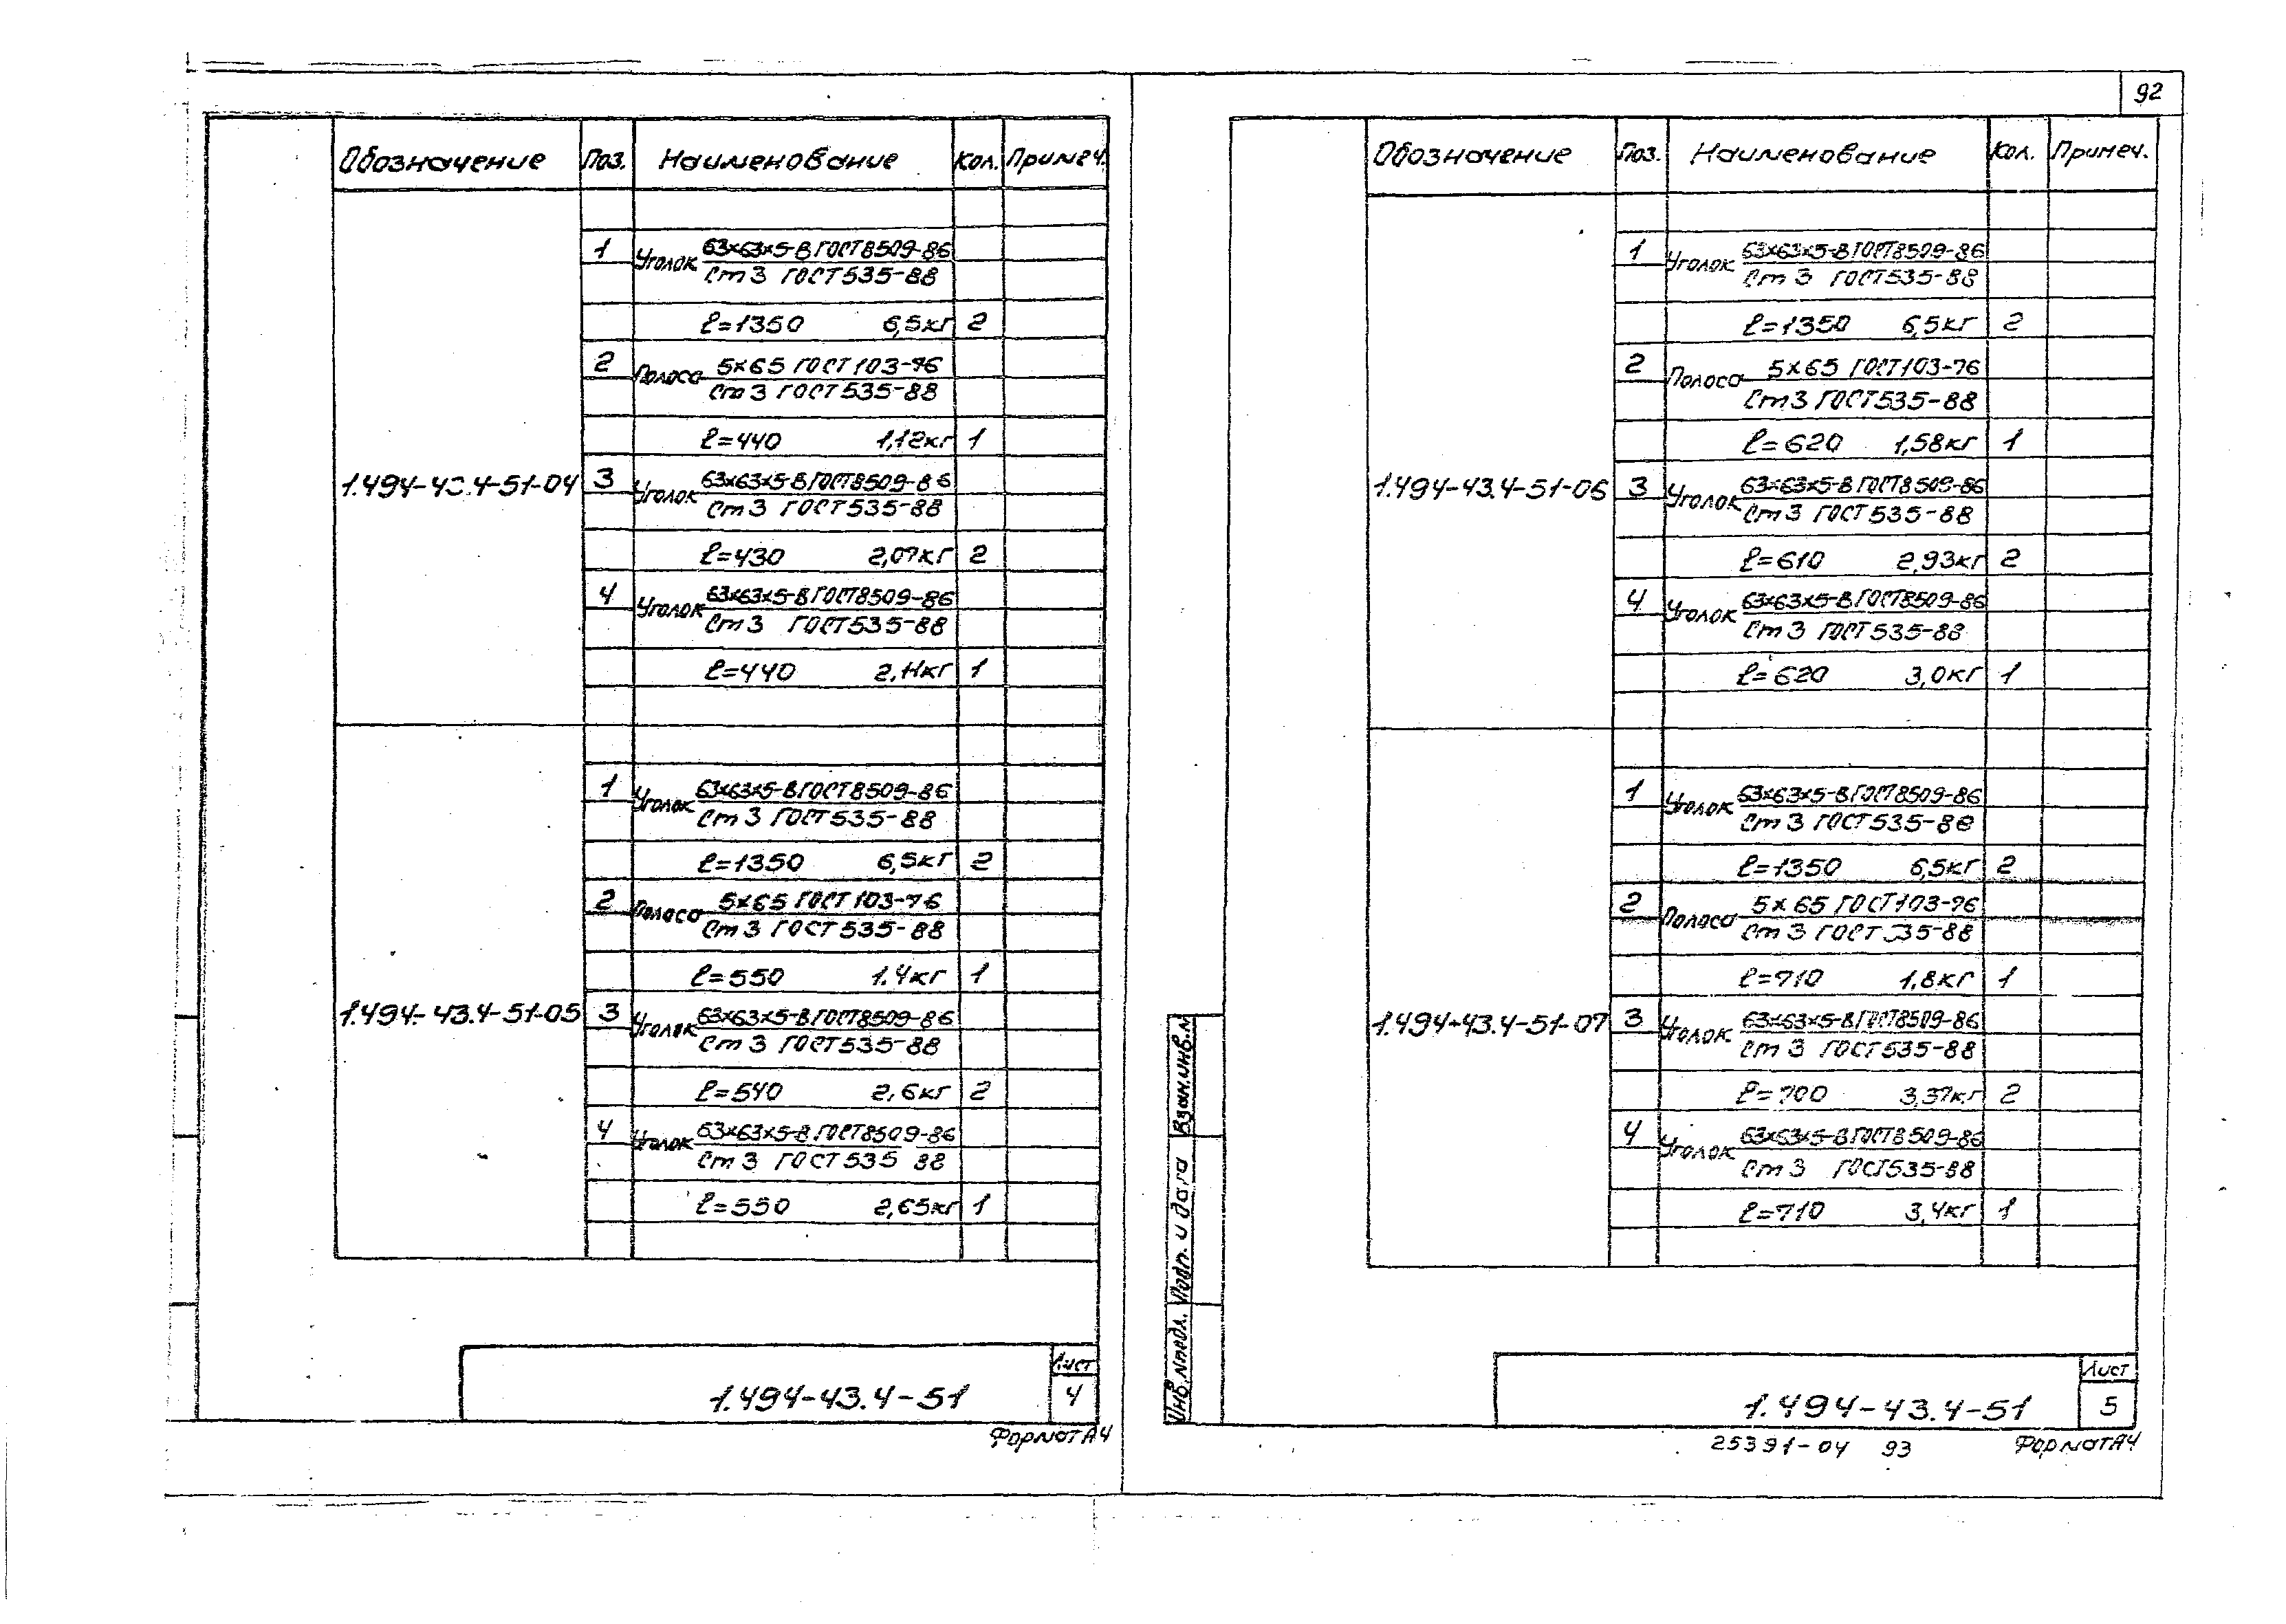 92
Обозначение Поз. Наименование Кол. Примеч.
1 Уголок 63×63×5-В ГОСТ 8509-86
Ст 3 ГОСТ 535-88
ℓ=1350 6,5кг 2
2 Полоса 5×65 ГОСТ 103-76
Ст 3 ГОСТ 535-88
ℓ=440 1,12кг 1
1.494-43.4-51-04 3 Уголок 63×63×5-В ГОСТ 8509-86
Ст 3 ГОСТ 535-88
ℓ=430 2,07кг 2
4 Уголок 63×63×5-В ГОСТ 8509-86
Ст 3 ГОСТ 535-88
ℓ=440 2,11кг 1
1 Уголок 63×63×5-В ГОСТ 8509-86
Ст 3 ГОСТ 535-88
ℓ=1350 6,5кг 2
2 Полоса 5×65 ГОСТ 103-76
Ст 3 ГОСТ 535-88
ℓ=550 1.4кг 1
1.494-43.4-51-05 3 Уголок 63×63×5-В ГОСТ 8509-86
Ст 3 ГОСТ 535-88
ℓ=540 2,6кг 2
4 Уголок 63×63×5-В ГОСТ 8509-86
Ст 3 ГОСТ 535 88
ℓ=550 2,65кг 1
Лист
1.494-43.4-51 4
Формат А4
Обозначение Поз. Наименование Кол. Примеч.
1 Уголок 63×63×5-В ГОСТ 8509-86
Ст 3 ГОСТ 535-88
ℓ=1350 6,5кг 2
2 Полоса 5×65 ГОСТ 103-76
Ст 3 ГОСТ 535-88
ℓ=620 1,58кг 1
1.494-43.4-51-06 3 Уголок 63×63×5-В ГОСТ 8509-86
Ст 3 ГОСТ 535-88
ℓ=610 2,93кг 2
4 Уголок 63×63×5-В ГОСТ 8509-86
Ст 3 ГОСТ 535-88
ℓ=620 3,0кг 1
1 Уголок 63×63×5-В ГОСТ 8509-86
Ст 3 ГОСТ 535-88
ℓ=1350 6,5кг 2
2 Полоса 5×65 ГОСТ 103-76
Ст 3 ГОСТ 535-88
ℓ=710 1,8кг 1
1.494-43.4-51-07 3 Уголок 63×63×5-В ГОСТ 8509-86
Ст 3 ГОСТ 535-88
ℓ=700 3,37кг 2
4 Уголок 63×63×5-В ГОСТ 8509-86
Ст 3 ГОСТ 535-88
ℓ=710 3,4кг 1
Взам.инв.N
Подп. и дата
Инв.Nподл.
Лист
1.494-43.4-51 5
25391-04 93 Формат А4